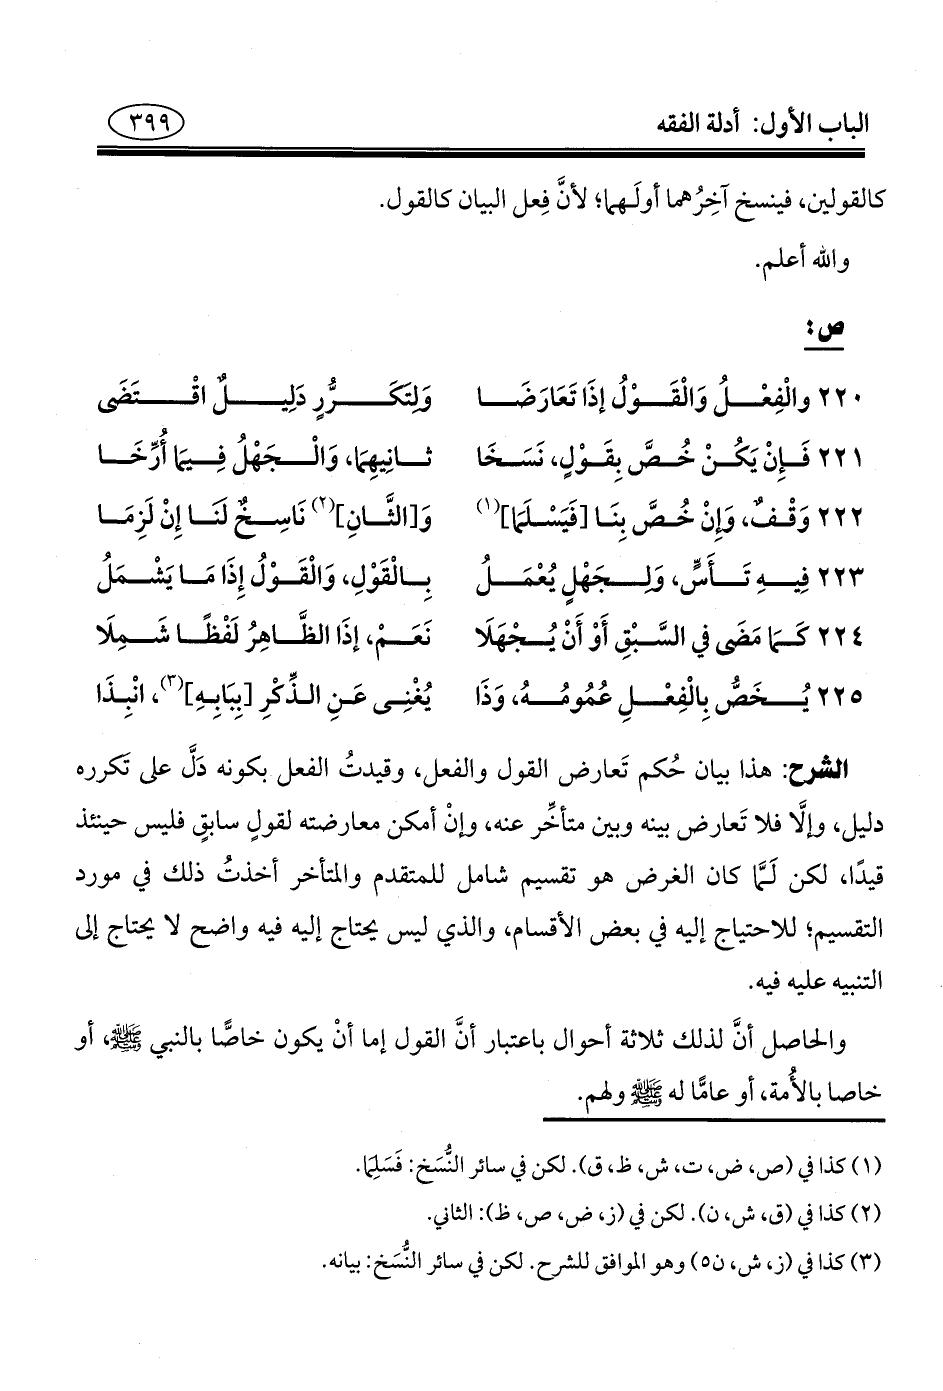 الباب الأول: أدلة الفقه ٣٩٩
كالقولين، فينسخ آخِرُهما أولَهما؛ لأنَّ فِعل البيان كالقول.
والله أعلم.
ص:
٢٢٠ والْفِعْلُ وَالْقَوْلُ إذَا تَعَارَضَا وَلِتَكَرُّرٍ دَلِيلٌ اقْتَضَى
٢٢١ فَإِنْ يَكُنْ خُصَّ بِقَوْلٍ، نَسَخَا ثانِيهِمَا، وَالْجَهْلُ فِيمَا أُرِّخَا
٢٢٢ وَقْفٌ، وَإِنْ خُصَّ بِنَا [فَيَسْلَمَا](١) وَ[الثَّانِ](٢) نَاسِخٌ لَنَا إنْ لَزِمَا
٢٢٣ فِيهِ تَأَسٍّ، وَلِجَهْلٍ يُعْمَلُ بِالْقَوْلِ، وَالْقَوْلُ إذَا مَا يَشْمَلُ
٢٢٤ كَمَا مَضَى في السَّبْقِ أَوْ أَنْ يُجْهَلَا نَعَمْ، إذَا الظَّاهِرُ لَفْظًا شَمِلَا
٢٢٥ يُخَصُّ بِالْفْعْلِ عُمُومُهُ، وَذَا يُغْنِى عَنِ الذِّكْرِ [بِبَابِهِ](٣)، انْبِذَا
الشرح: هذا بيان حُكم تَعارض القول والفعل، وقيدتُ الفعل بكونه دَلَّ على تَكرره
دليل، وإلَّا فلا تَعارض بينه وبين متأخِّر عنه، وإنْ أمكن معارضته لقولٍ سابقٍ فليس حينئذ
قيدًا، لكن لَمَّا كان الغرض هو تقسيم شامل للمتقدم والمتأخر أخذتُ ذلك في مورد
التقسيم؛ للاحتياج إليه في بعض الأقسام، والذي ليس يحتاج إليه فيه واضح لا يحتاج إلى
التنبيه عليه فيه.
والحاصل أنَّ لذلك ثلاثة أحوال باعتبار أنَّ القول إما أنْ يكون خاصًّا بالنبي ﷺ، أو
خاصا بالأُمة، أو عامًّا له ﷺ ولهم.
(١) كذا في (ص، ض، ت، ش، ظ، ق). لكن في سائر النُّسَخ: فَسَلِمَا.
(٢) كذا في (ق، ش، ن). لكن في (ز، ض، ص، ظ): الثاني.
(٣) كذا في (ز، ش، ن٥) وهو الموافق للشرح. لكن في سائر النُّسَخ: بيانه.